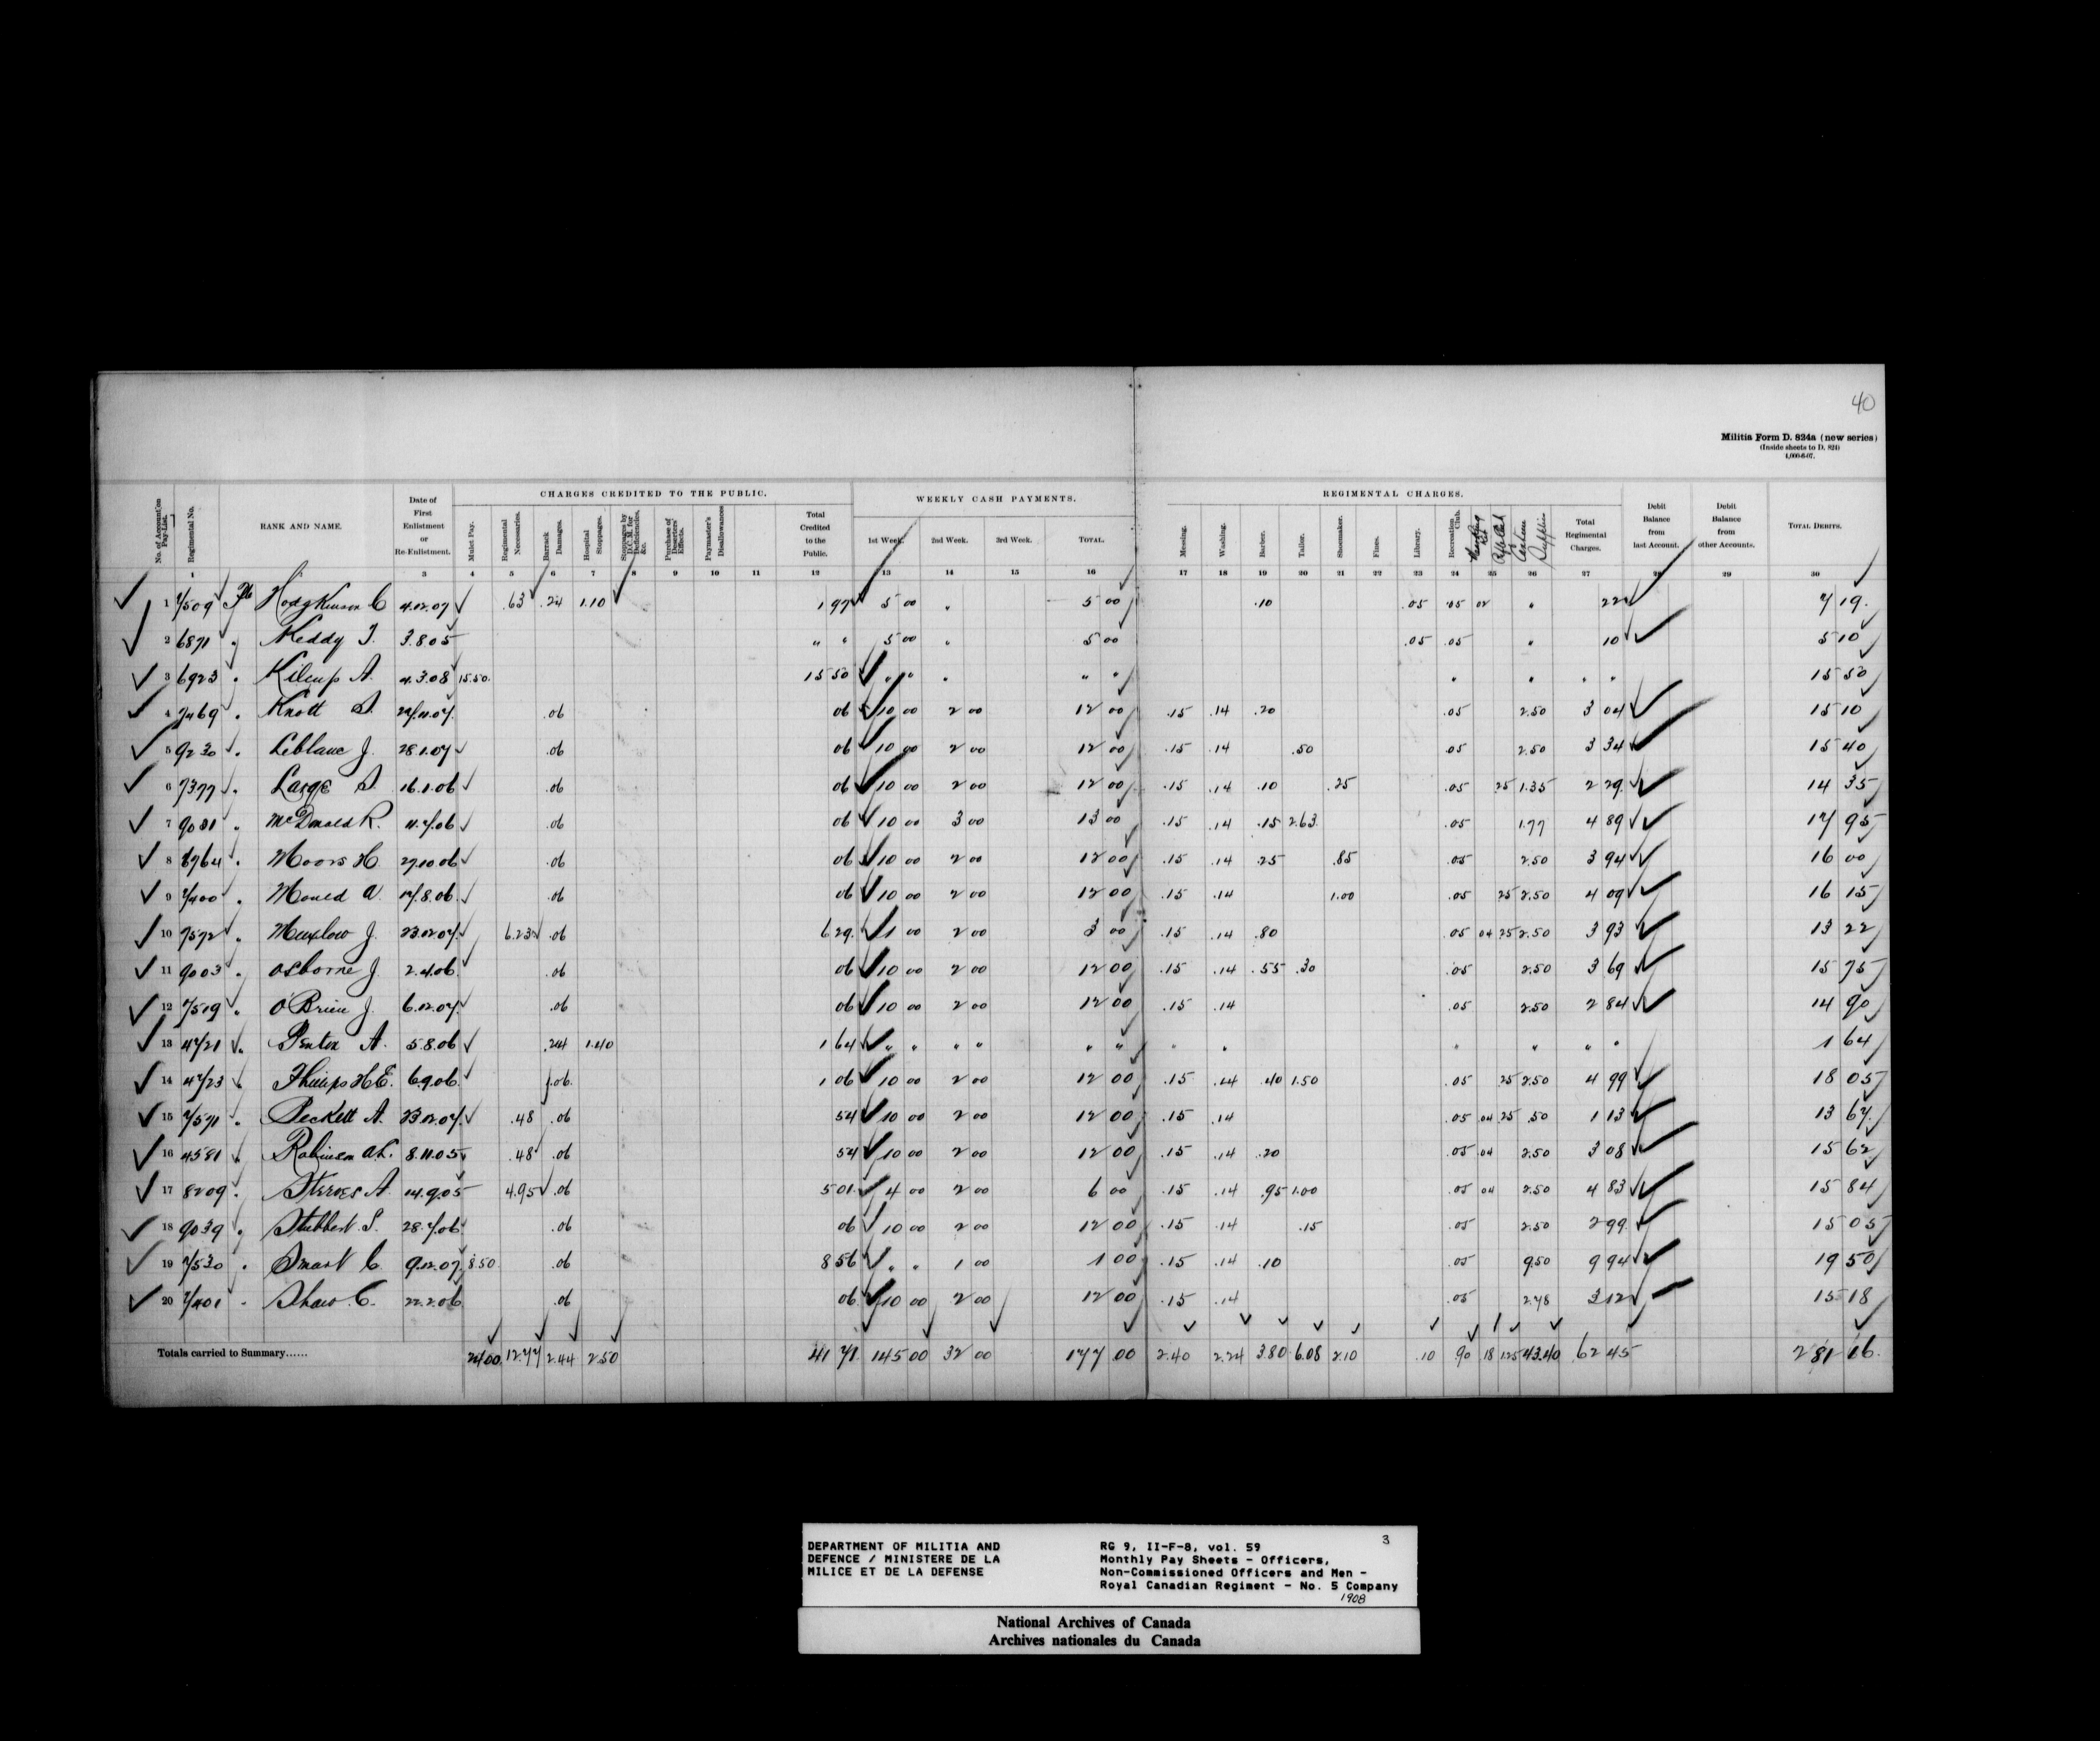 40
Militia Form D. 824a (new series)
(Inside sheets to D. 824)
4,000-8-07.
CHARGES CREDITED TO THE PUBLIC. WEEKLY CASH PAYMENTS. REGIMENTAL CHARGES.
No. of Account on Pay-List. Regimental No. RANK AND NAME. Date of First Enlistment or Re-Enlistment. Mulct Pay. Regimental Necessaries. Barrack Damages. Hospital Stoppages. Stoppages by D.C.M. for Deficiencies, &c. Purchase of Deserters' Effects. Paymaster's Disallowances Total Credited to the Public. 1st Week. 2nd Week. 3rd Week. TOTAL. Messing. Washing. Barber. Tailor. Shoemaker. Fines. Library. Recreation Club. Canteen Supplies Total Regimental Charges. Debit Balance from last Account. Debit Balance from other Accounts. TOTAL DEBITS.
1 3 4 5 6 7 8 9 10 11 12 13 14 15 16 17 18 19 20 21 22 23 24 25 26 27 28 29 30
1 7509 Pte Hodgkinson C 4.12.07 .63 .24 1.10 1 97 5 00 " 5 00 .10 .05 .05 02 " 22 7 19
2 6871 " Keddy J. 3.8.05 " " 5 00 " 5 00 .05 .05 " 10 5 10
3 6923 " Kilcup A. 4.3.08 15.50 15 50 " " " " " " " " " 15 50
4 7469 " Knott S. 27.11.07 .06 06 10 00 2 00 12 00 .15 .14 .20 .05 2.50 3 04 15 10
5 9230 " Leblanc J. 28.1.07 .06 06 10 00 2 00 12 00 .15 .14 .50 .05 2.50 3 34 15 40
6 7377 " Large S. 16.1.06 .06 06 10 00 2 00 12 00 .15 .14 .10 .25 .05 25 1.35 2 29 14 35
7 9081 " McDonald R. 11.7.06 .06 06 10 00 3 00 13 00 .15 .14 .15 2.63 .05 1.77 4 89 17 95
8 8764 " Moors H 27.10.06 .06 06 10 00 2 00 12 00 .15 .14 .25 .85 .05 2.50 3 94 16 00
9 7400 " Mould A. 17.8.06 .06 06 10 00 2 00 12 00 .15 .14 1.00 .05 25 2.50 4 09 16 15
10 7572 " J. 23.12.07 6.23 .06 6 29 1 00 2 00 3 00 .15 .14 .80 .05 04 25 2.50 3 93 13 22
11 9003 " Osborne J. 2.4.06 .06 06 10 00 2 00 12 00 .15 .14 .55 .30 .05 2.50 3 69 15 75
12 7519 " O'Brien J. 6.12.07 .06 06 10 00 2 00 12 00 .15 .14 .05 2.50 2 84 14 90
13 4721 " Penton A. 5.8.06 .24 1.40 1 64 " " " " " " " " " " " " 1 64
14 4723 " Phillips H.E. 6.9.06 1.06 1 06 10 00 2 00 12 00 .15 .14 .40 1.50 .05 25 2.50 4 99 18 05
15 7571 " Peckett A. 23.12.07 .48 .06 54 10 00 2 00 12 00 .15 .14 .05 04 25 .50 1 13 13 67
16 4581 " Robinson 8.11.05 .48 .06 54 10 00 2 00 12 00 .15 .14 .20 .05 04 2.50 3 08 15 62
17 8209 " Steroes A. 14.9.05 4.95 .06 5 01 4 00 2 00 6 00 .15 .14 .95 1.00 .05 04 2.50 4 83 15 84
18 9039 " Stubbert S. 28.7.06 .06 06 10 00 2 00 12 00 .15 .14 .15 .05 2.50 2 99 15 05
19 7530 " Smart C. 9.12.07 8.50 .06 8 56 " " 1 00 1 00 .15 .14 .10 .05 9.50 9 94 19 50
20 7401 " Shaw C. 22.2.06 .06 06 10 00 2 00 12 00 .15 .14 .05 2.78 3 12 15 18
Totals carried to Summary...... 24.00 12.77 2.44 2.50 41 71 145 00 32 00 177 00 2.40 2.24 3.80 6.08 2.10 .10 .90 .18 1.25 43.40 62 45 281 16
DEPARTMENT OF MILITIA AND
DEFENCE / MINISTERE DE LA
MILICE ET DE LA DEFENSE
RG 9, II-F-8, vol. 59 3
Monthly Pay Sheets - Officers,
Non-Commissioned Officers and Men -
Royal Canadian Regiment - No. 5 Company
1908
National Archives of Canada
Archives nationales du Canada